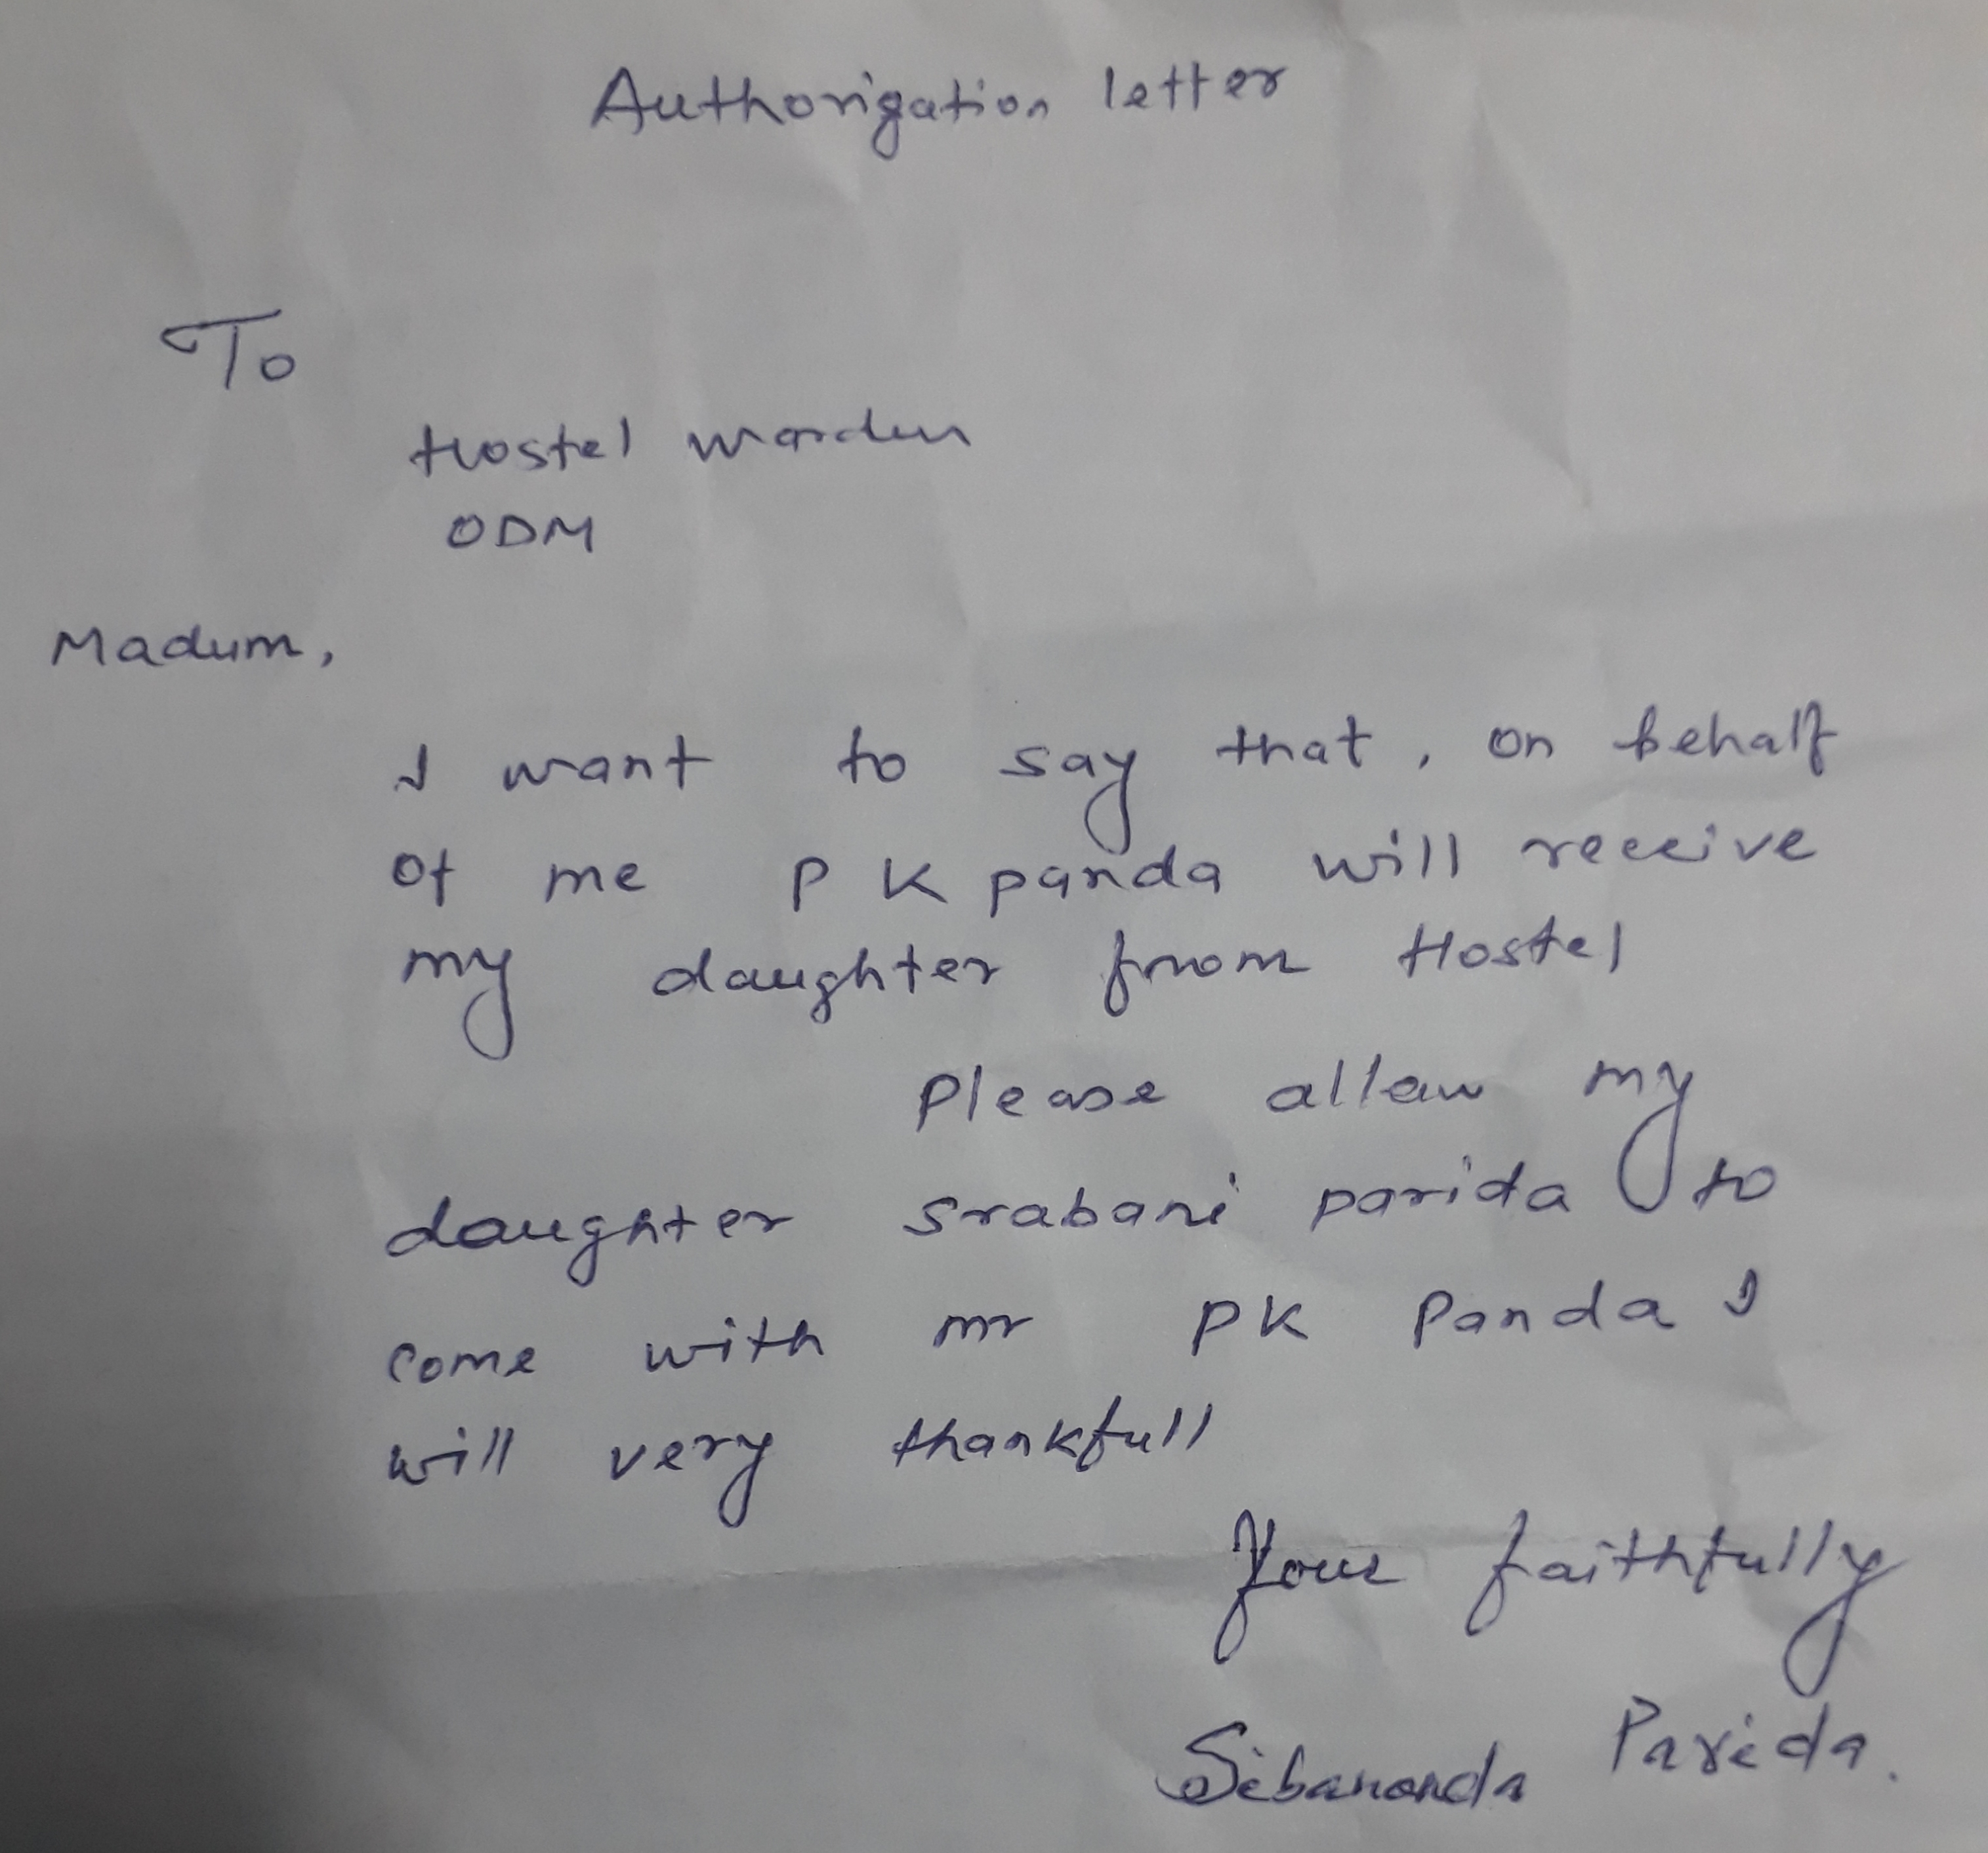 Authorigation letter
To
Hostel warden
ODM
Madum,
I want to say that, on behalf
of me P K panda will receive
my daughter from Hostel
please allow my
daughter srabani parida to
come with mr PK Panda I
will very thankfull
Your faithfully
Sibananda Parida.